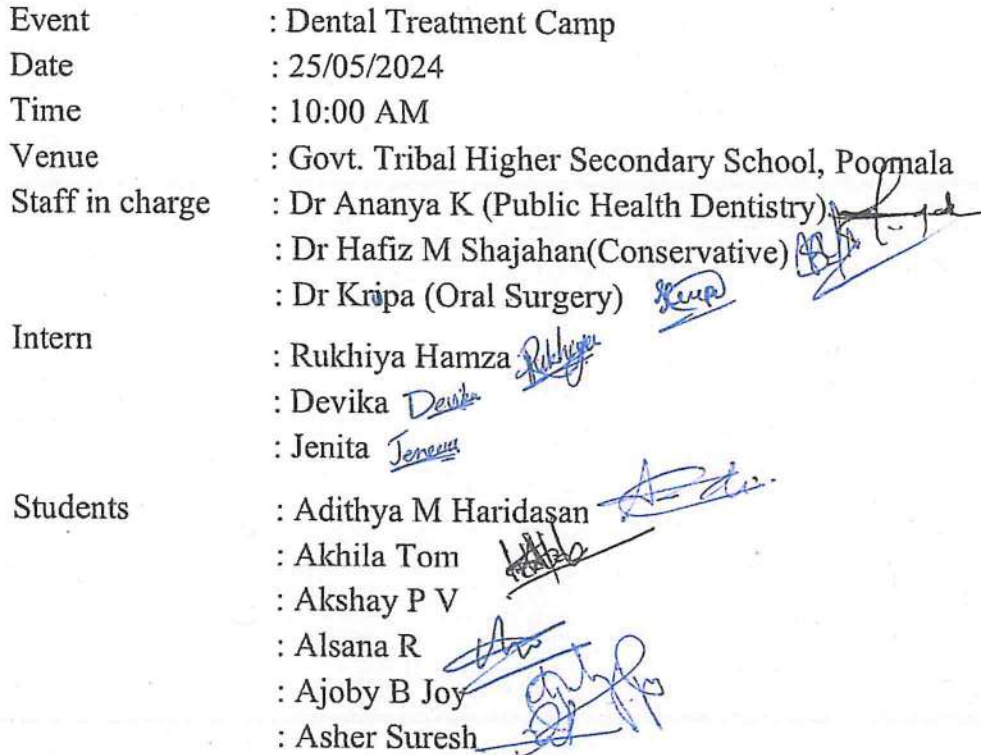 Event : Dental Treatment Camp
Date : 25/05/2024
Time : 10:00 AM
Venue : Govt. Tribal Higher Secondary School, Poomala
Staff in charge : Dr Ananya K (Public Health Dentistry)
: Dr Hafiz M Shajahan(Conservative)
: Dr Kripa (Oral Surgery)
Intern : Rukhiya Hamza Rukhiya
: Devika Devika
: Jenita
Students : Adithya M Haridasan
: Akhila Tom
: Akshay P V
: Alsana R
: Ajoby B Joy
: Asher Suresh